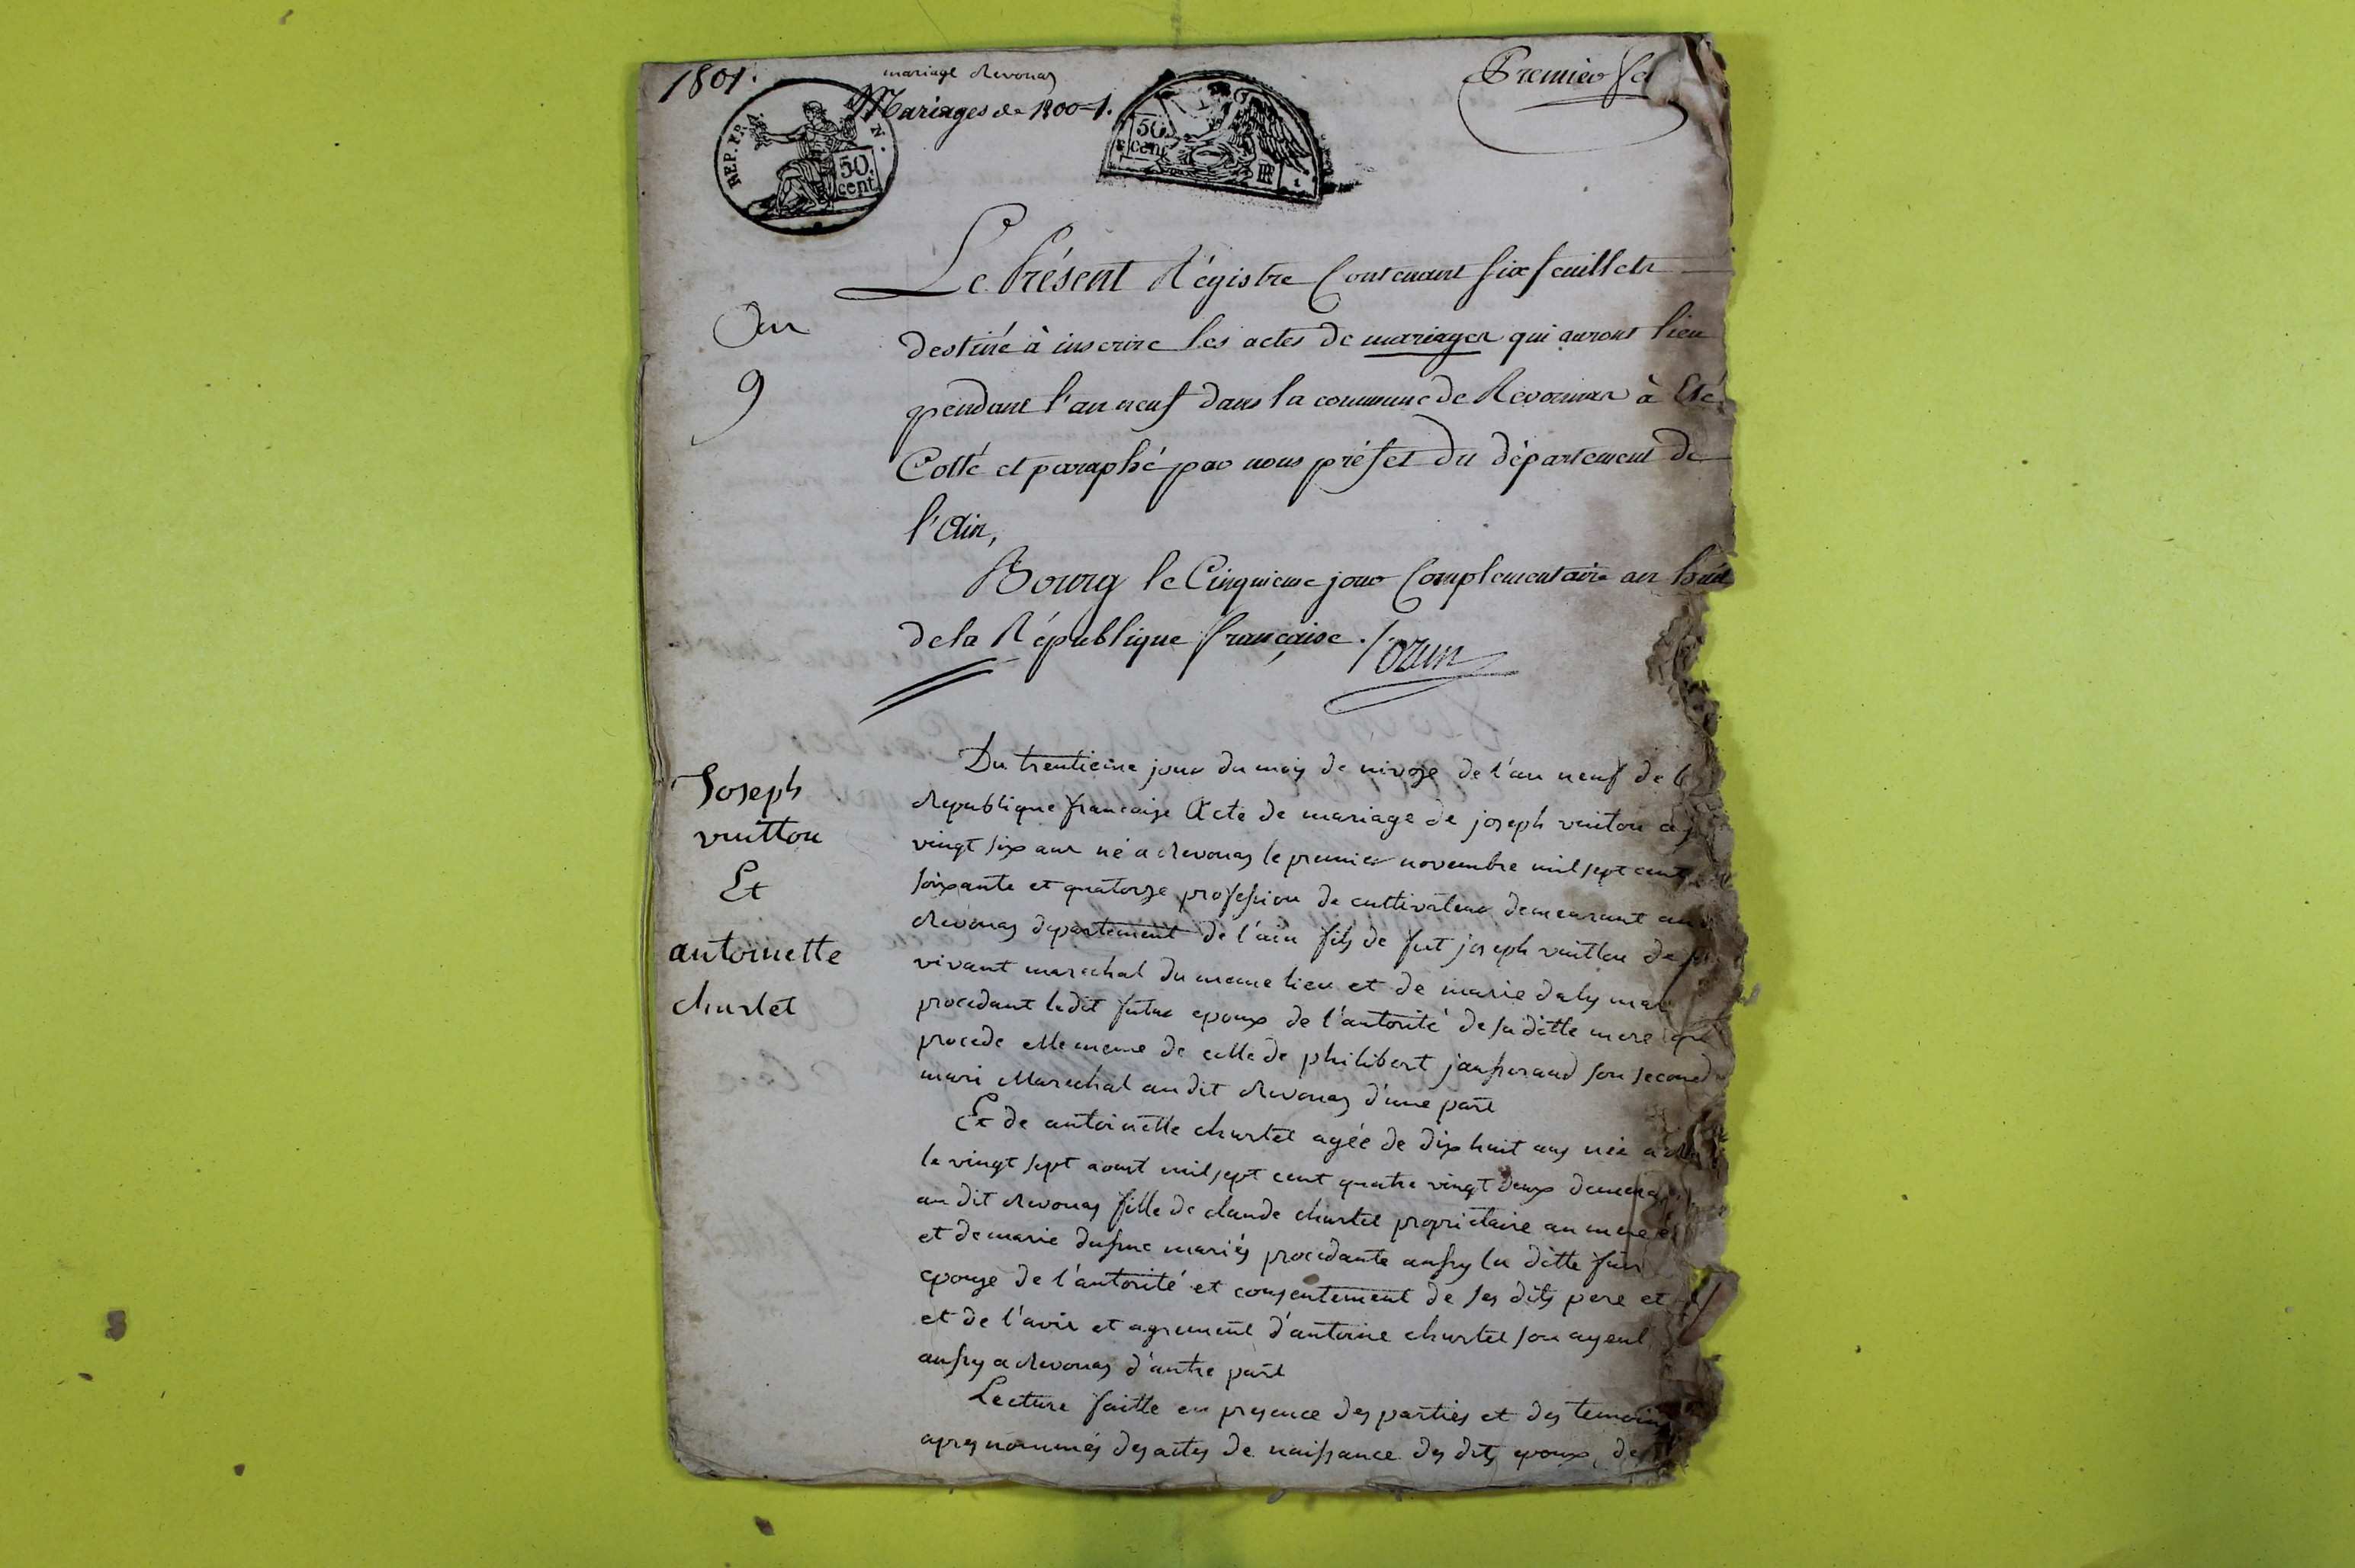 1801.
mariage Revonas
Mariages de 1800=1.
Premier
REP. FRA.
50
cent.
50
cent
An
9
Le Présent Régistre Contenant six feuillets
destiné à inscrire les actes de mariages qui auront lieu
pendant l'an neuf dans la commune de Revonnas à Eté
Cotté et paraphé par nous préfet du département de
l'Ain,
Bourg le Cinquieme jour Complementaire an huit
de la République française.
Joseph
vuitton
Et
antoinette
churlet
Du trentieme jour du mois de nivose de l'an neuf de la
Republique francaise Acte de mariage de joseph vuiton
vingt six ans né a Revonas le premier novembre mil sept cent
soixante et quatorze profession de cultivateur demeurant
Revonas departement de l'ain fils de fut joseph vuitton de
vivant marechal du meme lieu et de marie daly
procedant ledit futur epoux de l'autorité de sa ditte mere qui
procede elle meme de celle de philibert son second
mari Marechal au dit Revonas d'une part
Et de antoinette churlet agée de dix huit ans née a
le vingt sept aoust mil sept cent quatre vingt deux
au dit Revonas fille de claude churlet propriétaire au
et de marie dufour mariés procedante aussy la ditte
epouse de l'autorité et consentement de ses dits pere et
et de l'avis et agrement d'antoine churlet son ayeul
aussy a Revonas d'autre part
Lecture faitte en presence des parties et des temoins
apres nommés des actes de naissance des dits epoux,